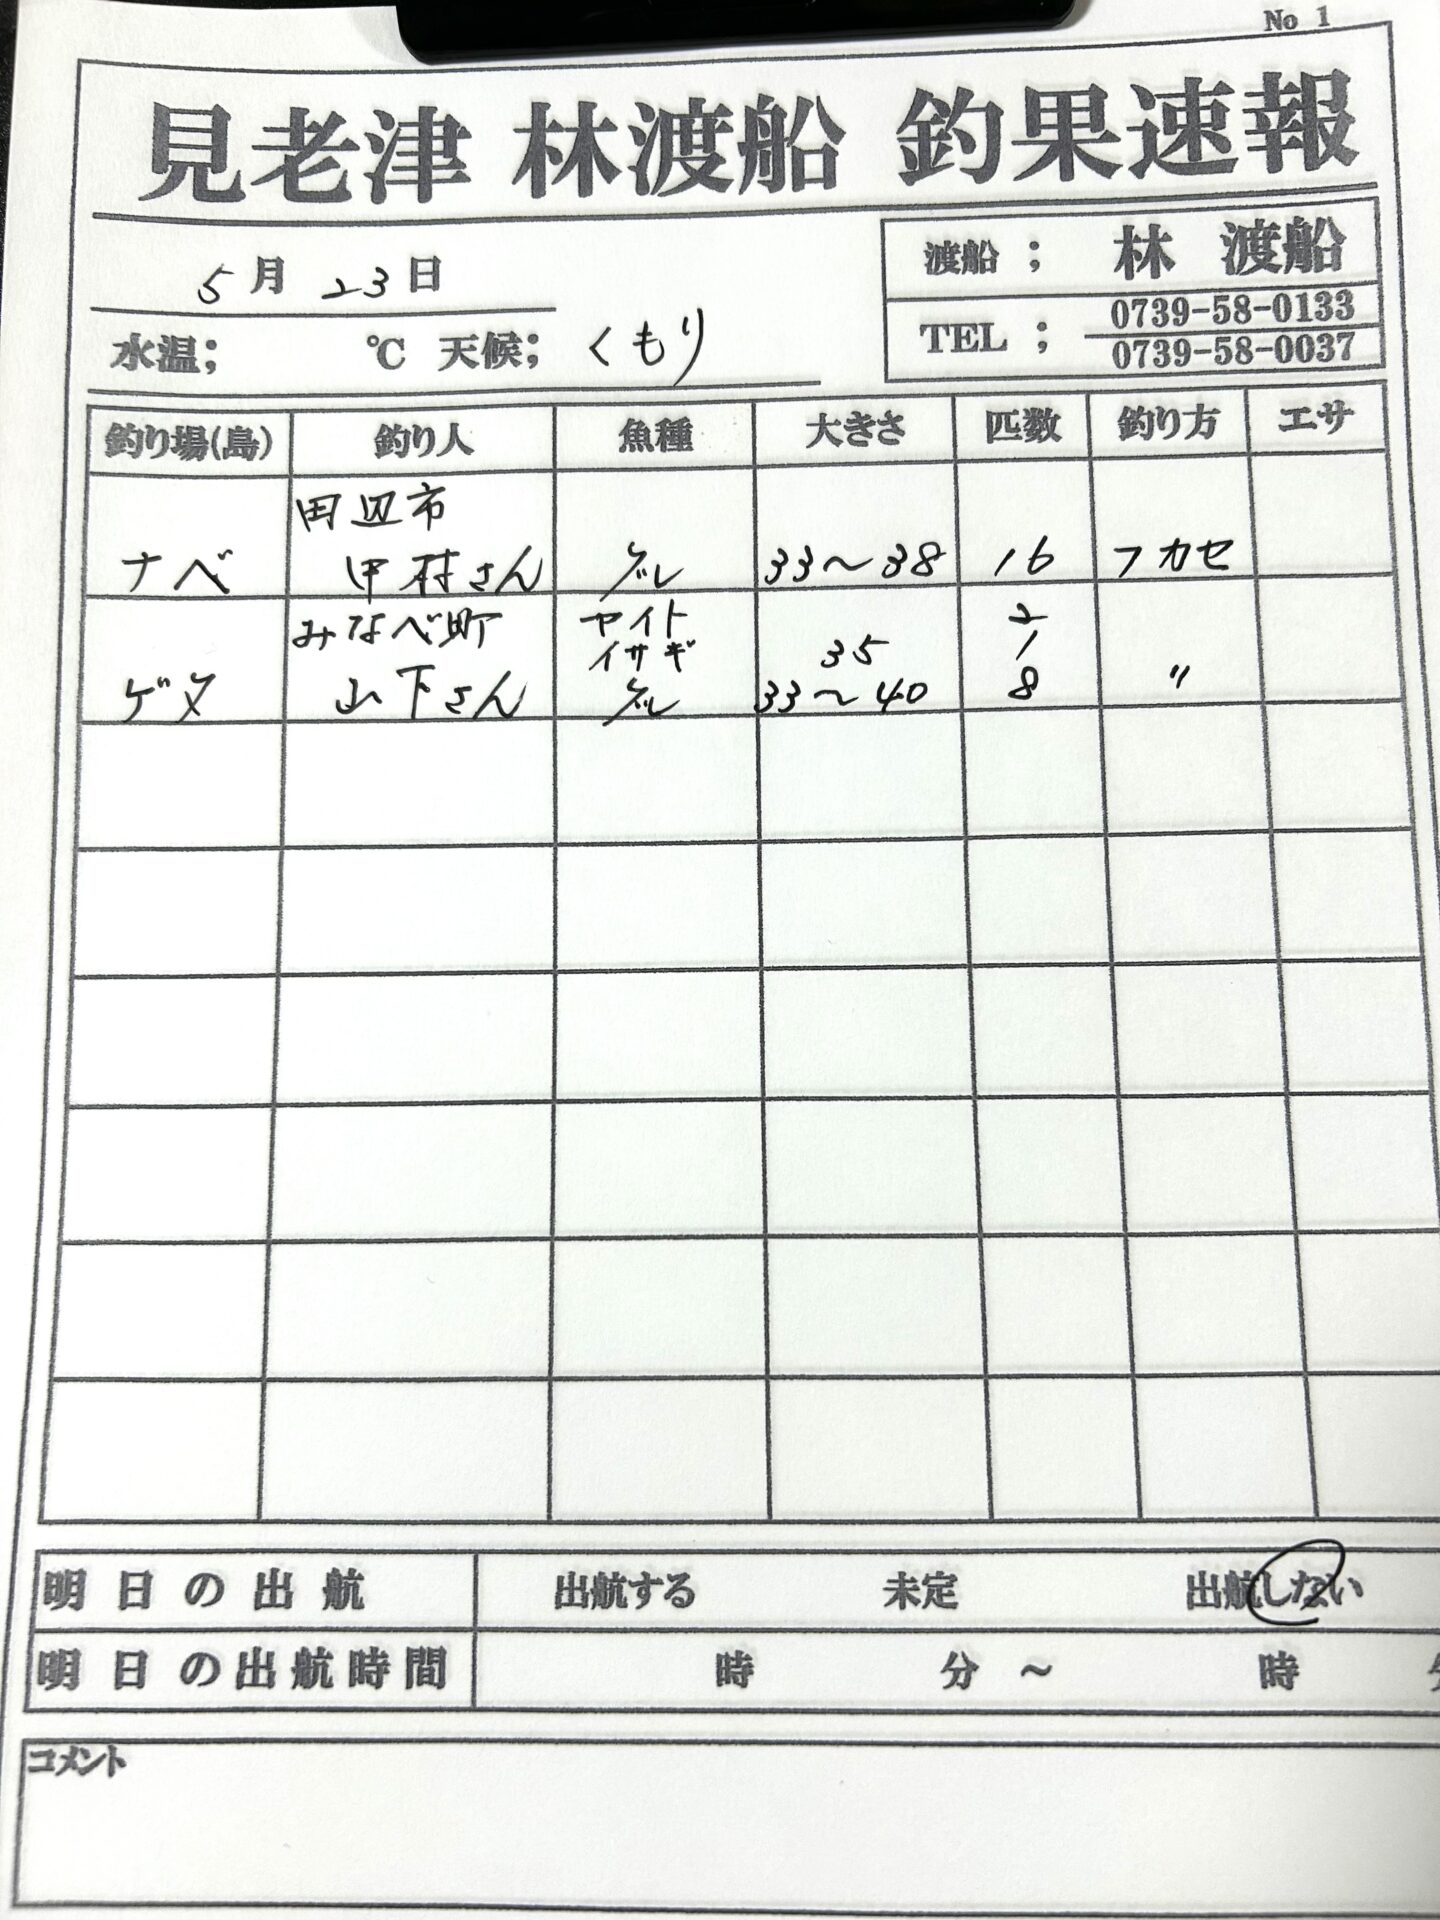 No 1
見老津 林渡船 釣果速報
5月 23日
渡船 ; 林 渡船
TEL ; 0739-58-0133
0739-58-0037
水温; ℃ 天候; くもり
釣り場(島) 釣り人 魚種 大きさ 匹数 釣り方 エサ
田辺市
ナベ 中村さん グレ 33〜38 16 フカセ
みなべ町 ヤイト 2
イサギ 35 1
ゲタ 山下さん グレ 33〜40 8 〃
明日の出航 出航する 未定 出航しない
明日の出航時間 時 分 ~ 時
コメント